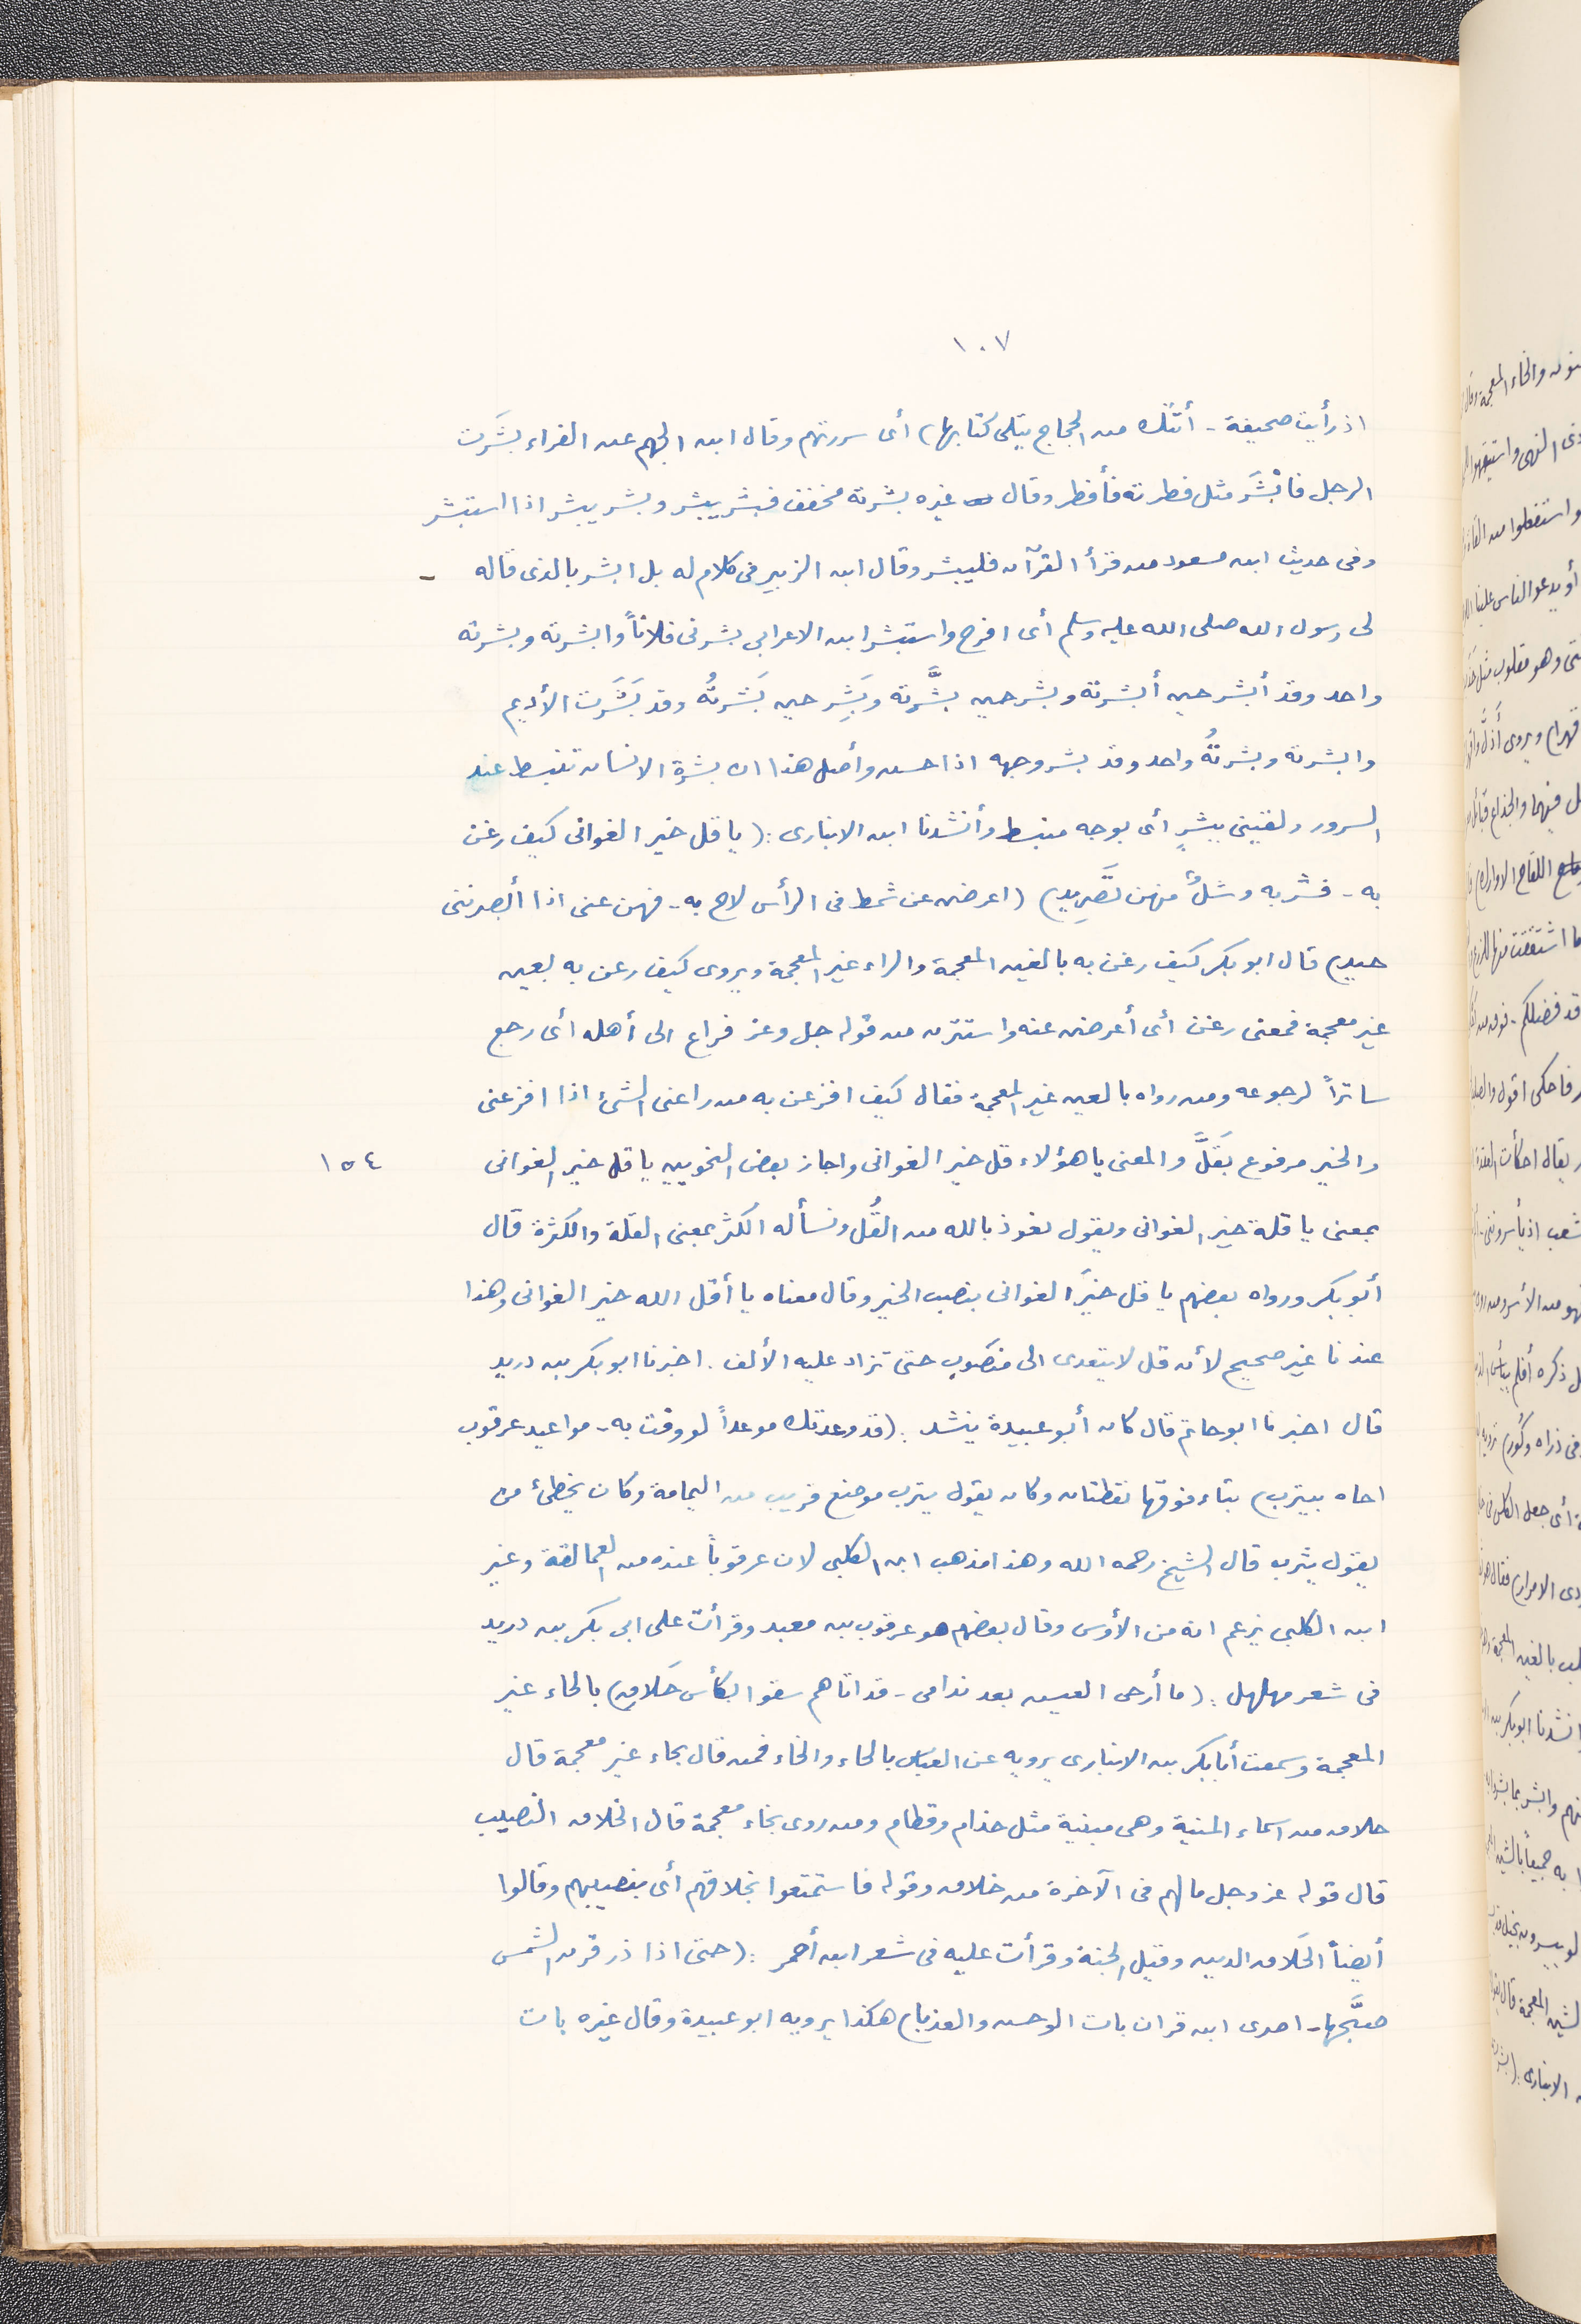 ١٠٧
اذ رأيت صحيفة - أتتك من الحجاج يتلى كتابها) أى سررتهم وقال ابن الجهم عن الفراء بشَرت
الرجل فابشَر مثل فطرته فأفطر وقال غيره بشرته مخفف فبشر يبشر وبشر يبشر اذا استبشر
وفى حديث ابن مسعود من قرأ القرآن فليبشر وقال ابن الزبير فى كلام له بل ابشر بالذى قاله -
لى رسول الله صلى الله عليه وسلم أى افرح واستبشر ابن الاعرابى بشرنى فلاناً وابشرته وبشرته
واحد وقد أبشر حين أبشرته وبشر حين بشَّرته وبَشِر حين بَشرتُه وقد بَشَرت الأديم
وابشرته وبشرتُه واحد وقد بشر وجهه اذا حسن وأصل هذا ان بشرة الانسان تنبسط عند
السرور ولقينى ببشرٍ أى بوجه منبسط وأنشدنا ابن الانبارى : (يا قل خير الغوانى كيف رغن
به - فشربه وشلٌ منهن تصَّريد) (اعرضن عن شمط فى الرأس لاح به - فهن عنى اذا أبصرننى
حيد) قال ابو بكر كيف رغن به بالغين المعجمة والراء غير المعجمة ويروى كيف رعن به بعين
غير معجمة فمعنى رغن أى أعرضن عنه واستترن من قوله جل وعز فراغ الى أهله أى رجع
ساتراً لرجوعه ومن رواه بالعين غير المعجمة فقال كيف افزعن به من راعنى الشئ اذا افزعنى
والخير مرفوع بقَلَّ والمعنى يا هؤلاء قل خير الغوانى واجاز بعض النحويين يا قل خير الغوانى
١٥٤
بمعنى يا قلة خير الغوانى ويقول نعوذ بالله من القُل ونسأله الكثر بمعنى القلة والكثرة قال
أبو بكر ورواه بعضهم يا قل خيرَ الغوانى بنصب الخير وقال معناه يا أقل الله خير الغوانى وهذا
عندنا غير صحيح لأن قل لا يتعدى الى منصوب حتى تزاد عليه الألف. اخبرنا ابو بكر بن دريد
قال اخبرنا ابو حاتم قال كان أبو عبيدة ينشد : (قد وعدتك موعداً لو وقت به - مواعيد عرقوب
اخاه بيترب) بتاء فوقها نقطتان وكان يقول يترب موضع قريب من اليمامة وكان يخطئ من
يقول يثرب قال الشيخ رحمه الله وهذا مذهب ابن الكلبى لان عرقوباً عنده من العمالقة وغير
ابن الكلبى يزعم انه من الأوس وقال بعضهم هو عرقوب بن معبد وقرأت على ابى بكر بن دريد
فى شعر مهلهل : (ما أرجى العيس بعد ندامى - قد اتاهم سقوا بكأس حَلاق) بالحاء غير
المعجمة وسمعت أبا بكر بن الانبارى يرويه عن العباس بالحاء والخاء فمن قال بحاء غير معجمة قال
حلاق من اسماء المنية وهى مبنية مثل حذام وقطام ومن روى بخاء معجمة قال الخلاق النصيب
قال قوله عز وجل ما لهم فى الآخرة من خلاق وقوله فاستمتعوا بخلاقهم أى بنصيبهم وقالوا
أيضاً الخَلاق الدين وقيل الجنة وقرأت عليه فى شعر ابن أحمر : (حتى اذا ذر قرن الشمس
صبَّحها - احدى ابن قران بات الوحس والعذبا) هكذا يرويه ابو عبيدة وقال غيره بات